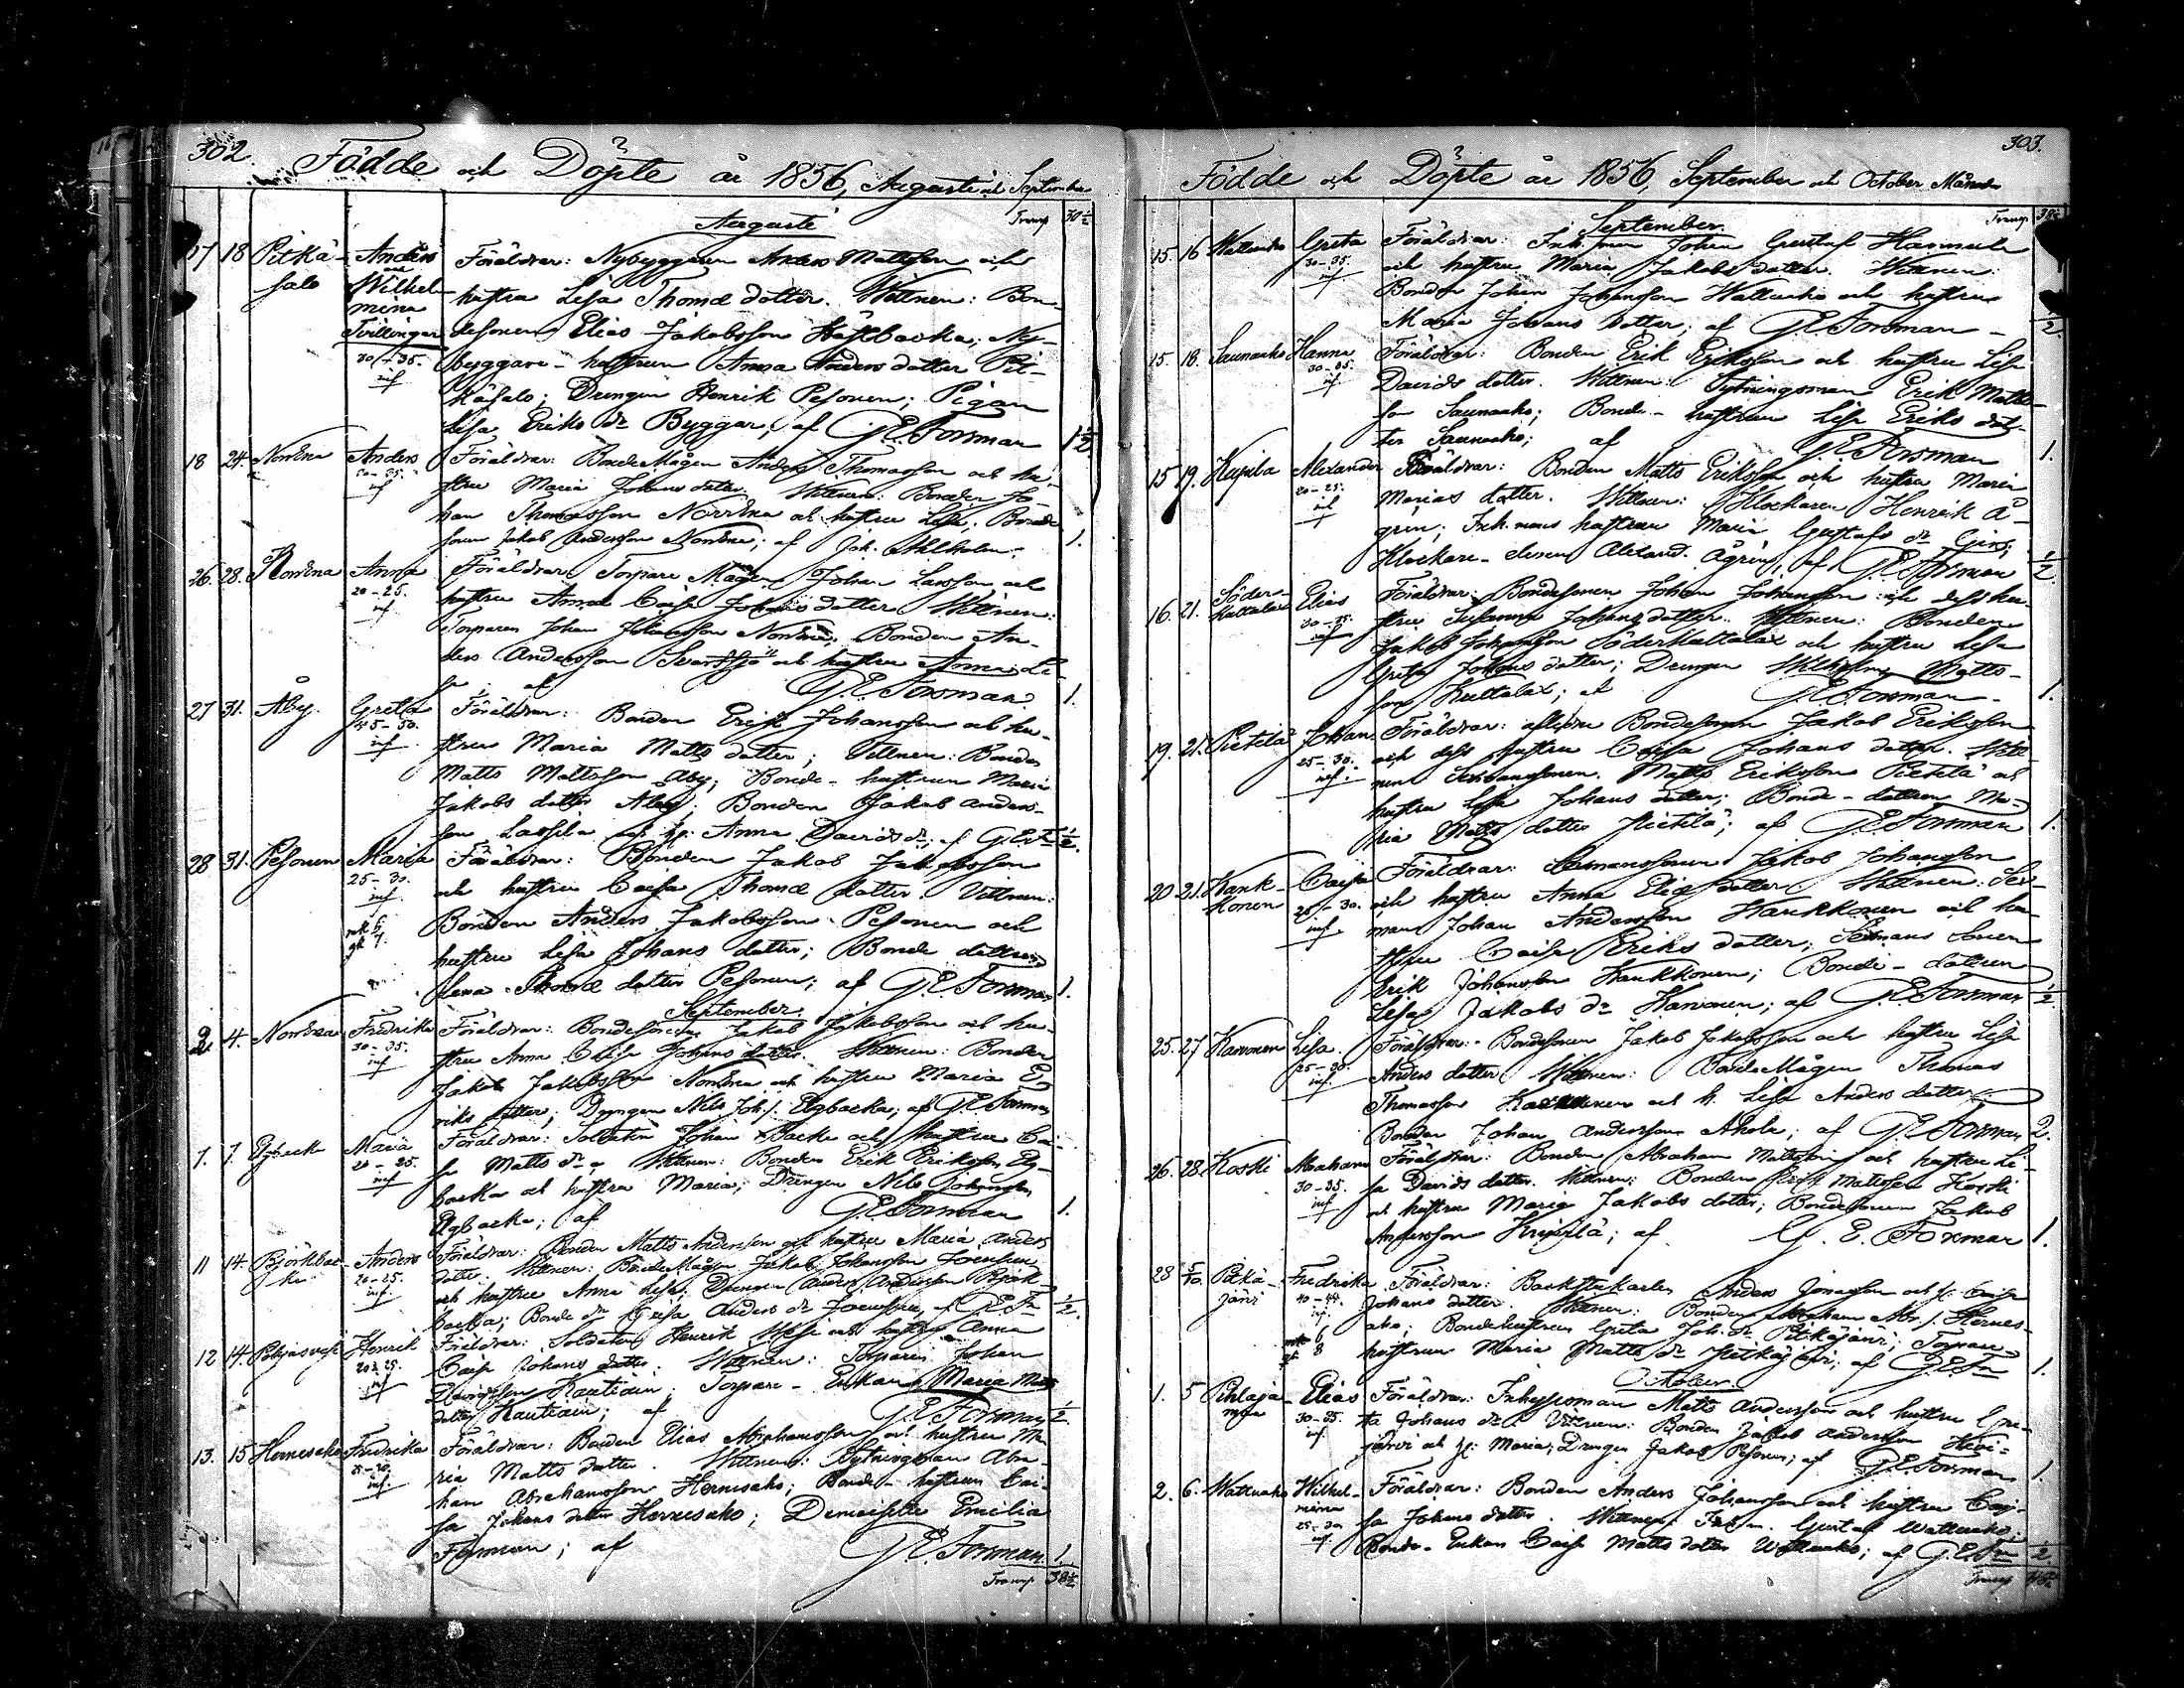 302.
Födde och Döpte år 1856, Augusti och September
Augusti
Transp 30½
17 18 Pitkä- Anders Föräldrar: Nybyggaren Anders Mattsson och
salo och Wilhel- hustru Lisa Thomæ dotter. Wittnen: Bon-
mina
Tvillingar desonen Elias Jakobsson Hästbacka; Ny-
30-35. byggare-hustrun Anna Anders dotter Pit-
inf käsalo; Drengen Henrik Pesonen; Pigan
Lisa Eriks dr Byggar, af G.E. Forsman 1½
18 24. Norrena Anders Föräldrar: BondeMågen Anders Thomasson och hu-
inf stru Maria Johans dotter. Wittnen: Bonden Jo-
han Thomasson Norrena och hustru Lisa. Bonde
sonen Jakob Andersson Norrena; af Joh. Ahlholm. 1.
26. 28. Norrena Anna Föräldrar: Torpare Mågen Johan Larsson och
20-25. hustru Anna Caisa Johans dotter Wittnen:
inf Torparen Johan Johansson Norrena; Bonden An-
ders Andersson Svartsjö och hustru Anna Li-
sa af G.E. Forsman. 1.
27 31. Åby. Greta Föräldrar: Bonden Erik Johansson och hu-
45-50. stru Maria Matts dotter; Vittnen: Bonden
inf Matts Mattsson Åby; Bonde-hustrun Maria
Jakobs dotter Åby; Bonden Jakob Anders-
son Lassila och h: Anna Davids dr, af G.E.Fn ½.
28 31. Pesonen Maria Föräldrar: Bonden Jakob Jakobsson
25-30. och hustru Caisa Thomæ dotter. Vittnen:
inf Bonden Anders Jakobsson Pesonen och
hustru Lisa Johans dotter; Bonde dottren
Lena Thomæ dotter Pesonen; af G.E. Forsman 1.
September.
2. 4. Norrena Fredrika Föräldrar: Bondesonen Jakob Jakobsson och hu-
30-35. stru Anna Caisa Johans dotter. Wittnen: Bonden
inf Jakob Jakobsson Norrena och hustru Maria E-
riks dotter; Drengen Nils Joh.s. Elgbacka; af G.E. Forsman
7. 7. Elgbacka Maria Föräldrar: Soldaten Johan Backe och hustru Cai-
20-25. sa Matts dr. Wittnen: Bonden Erik Eriksson Elg-
inf backa och hustru Maria; Drengen Nils Johansson
Elgbacka; af G.E. Forsman 1.
11 14. Björkbac- Anders Föräldrar: Bonden Matts Andersson och hustru Maria Anders
ka 20-25. dotter. Wittnen: BondeMågen Jakob Johansson Joensuu
inf och hustru Anna Lisa; Drengen Anders Andersson Björk-
backa; Bonde dr Caisa Anders dr Joensuu, af G.E.Fn ½.
12 14. Pohjasvesi Henrik Föräldrar: Soldaten Henrik och hustru Anna
20-25. Caisa Johans dotter. Wittnen: Torparen Johan
inf Davidsson Kautiain; Torpare-Enkan Maria Matts
dotter Kautiain; af G.E. Forsman ½.
13. 15 Hernesaho Fredrika Föräldrar: Bonden Elias Abrahamsson och hustru Ma-
inf ria Matts dotter. Wittnen: Sytningsman Abra-
ham Abrahamsson Hernesaho; Bonde-hustrun Cai-
sa Johans dotter Hernesaho; Demoiselle Emilia
Forsman; af G.E. Forsman. 1.
Transp 38½
303.
Födde och Döpte år 1856, September och October Månader
September.
Transp 38½
15. 16 Wattuaho Greta Föräldrar: Inh.sman Johan Gustaf Hannula
30-35. och hustru Maria Jakobs dotter. Wittnen:
inf Bonden Johan Johansson Wattuaho och hustru
Maria Johans dotter; af G.E. Forsman ½
15. 18. Saunaaho Hanna Föräldrar: Bonden Erik Eriksson och hustru Lisa
30-35. Davids dotter. Wittnen: Sytningsman Erik Matts-
inf son Saunaaho; Bonde-hustrun Lisa Eriks dot-
ter Saunaaho; af G.E. Forsman 1.
15 19. Kupila Alexander Föräldrar: Bonden Matts Eriksson och hustru Maria
20-25. Marias dotter. Wittnen: Klockaren Henrik Å-
inf gren; Inh.mans hustrun Maria Gustafs dr
Klockare-eleven Alexand. Ågren, af G.E. Forsman ½
16. 21. Söder- Elias Föräldrar: Bondesonen Johan Johansson och dess hu-
kultalax stru Susanna Johans dotter. Wittnen: Bonden
inf Jakob Johansson Söderkultalax och hustru Lisa
Greta Johans dotter; Drengen Wilhelm Matts-
son Kultalax; af G.E. Forsman 1.
19. 21. Pietilä Johan Föräldrar: aflidne Bondesonen Jakob Eriksson
25-30. och dess hustru Caisa Johans dotter. Witt-
inf nen Matts Eriksson Pietilä och
hustru Lisa Johans dotter; Bonde-dottren Ma-
ria Matts dotter Pietilä; af G.E. Forsman 1.
20 21. Kauk- Caisa Föräldrar: Sexmanssonen Jakob Johansson
konen 25-30. och hustru Anna Elias dotter. Wittnen: Sex-
inf man Johan Andersson Kaukkonen och hu-
stru Caisa Eriks dotter; Sexmans sonen
Erik Johansson Kaukkonen; Bonde-dottren
Lisa Jakobs dr Karvonen; af G.E. Forsman ½
25. 27 Karvonen Lisa. Föräldrar: Bondesonen Jakob Jakobsson och hustru Lisa
inf Anders dotter. Wittnen: BondeMågen Thomas
Thomasson och h. Lisa Anders dotter;
Bonden Johan Andersson Ahola; af G.E. Forsman 2.
26. 28. Koski Abraham Föräldrar: Bonden Abraham Mattsson och hustru Li-
30-35. sa Davids dotter. Wittnen: Bonden Erik Mattsson Koski
inf och hustru Maria Jakobs dotter; Bondesonen Jakob
Andersson Knipilä; af G.E. Forsman 1.
28 5/10. Pitkä- Fredrika Föräldrar: Backstukarlen Anders Jonasson och h: Caisa
järvi Johans dotter. Wittnen: Bonden Abraham Abr.s. Hernes-
inf aho; Bondehustrun Greta Joh. dr Pitkäjärvi; Torpare-
hustrun Maria Matts dr Pitkäjärvi; af G.E.Fn 1.
October
1. 5 Pihlaja- Elias Föräldrar: Inhysesman Matts Andersson och hustru Gre-
30-35. ta Johans dr. Vittnen: Bonden Jakob Andersson Kivi-
inf järvi och h: Maria; Drengen Jakob Pesonen; af G.E. Forsman 1.
2. 6. Wattuaho Wilhel- Föräldrar: Bonden Anders Johansson och hustru Cai-
mina sa Johans dotter. Wittnen: Inh.m. Gustaf Wattuaho;
inf Bonde-Enkan Caisa Matts dotter Wattuaho; af G.E.Fn ½
Transp